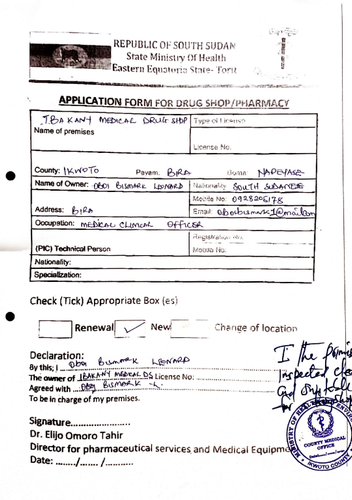 REPUBLIC OF SOUTH SUDAN
State Ministry Of Health
Eastern Equatoria State- Torit
APPLICATION FORM FOR DRUG SHOP/PHARMACY
IBAKANY MEDICAL DRUG SHOP
Name of premises
Type of License
License No.
County: IKWOTO Payam: BIRA Boma: NAPEYASE
Name of Owner: OBOI BISMARK LEONARD Nationality SOUTH SUDANESE
Mobile No. 0928206178
Address: BIRA Email
Occupation: MEDICAL CLINICAL OFFICER
Registration No.
(PIC) Technical Person Mobile No.
Nationality:
Specialization:
Check (Tick) Appropriate Box (es)
Renewal ✓ New Change of location
Declaration:
By this; I OBOI BISMARK LEONARD
The owner of IBAKANY MEDICAL DS License No:
Agreed with OBOI BISMARK L.
To be in charge of my premises.
I the
Inspected
and
for
Signature...............
Dr. Elijo Omoro Tahir
Director for pharmaceutical services and Medical Equipm
Date: ....../....../..........
MINISTRY OF HEALTH
COUNTY MEDICAL
OFFICE
IKWOTO COUNTY